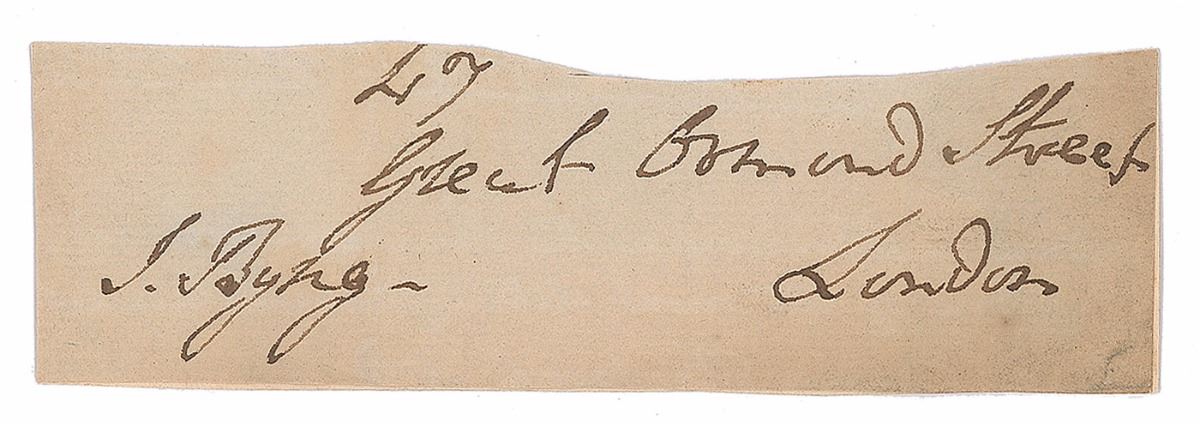 47
Great Ormond Street
J. Byng -
London